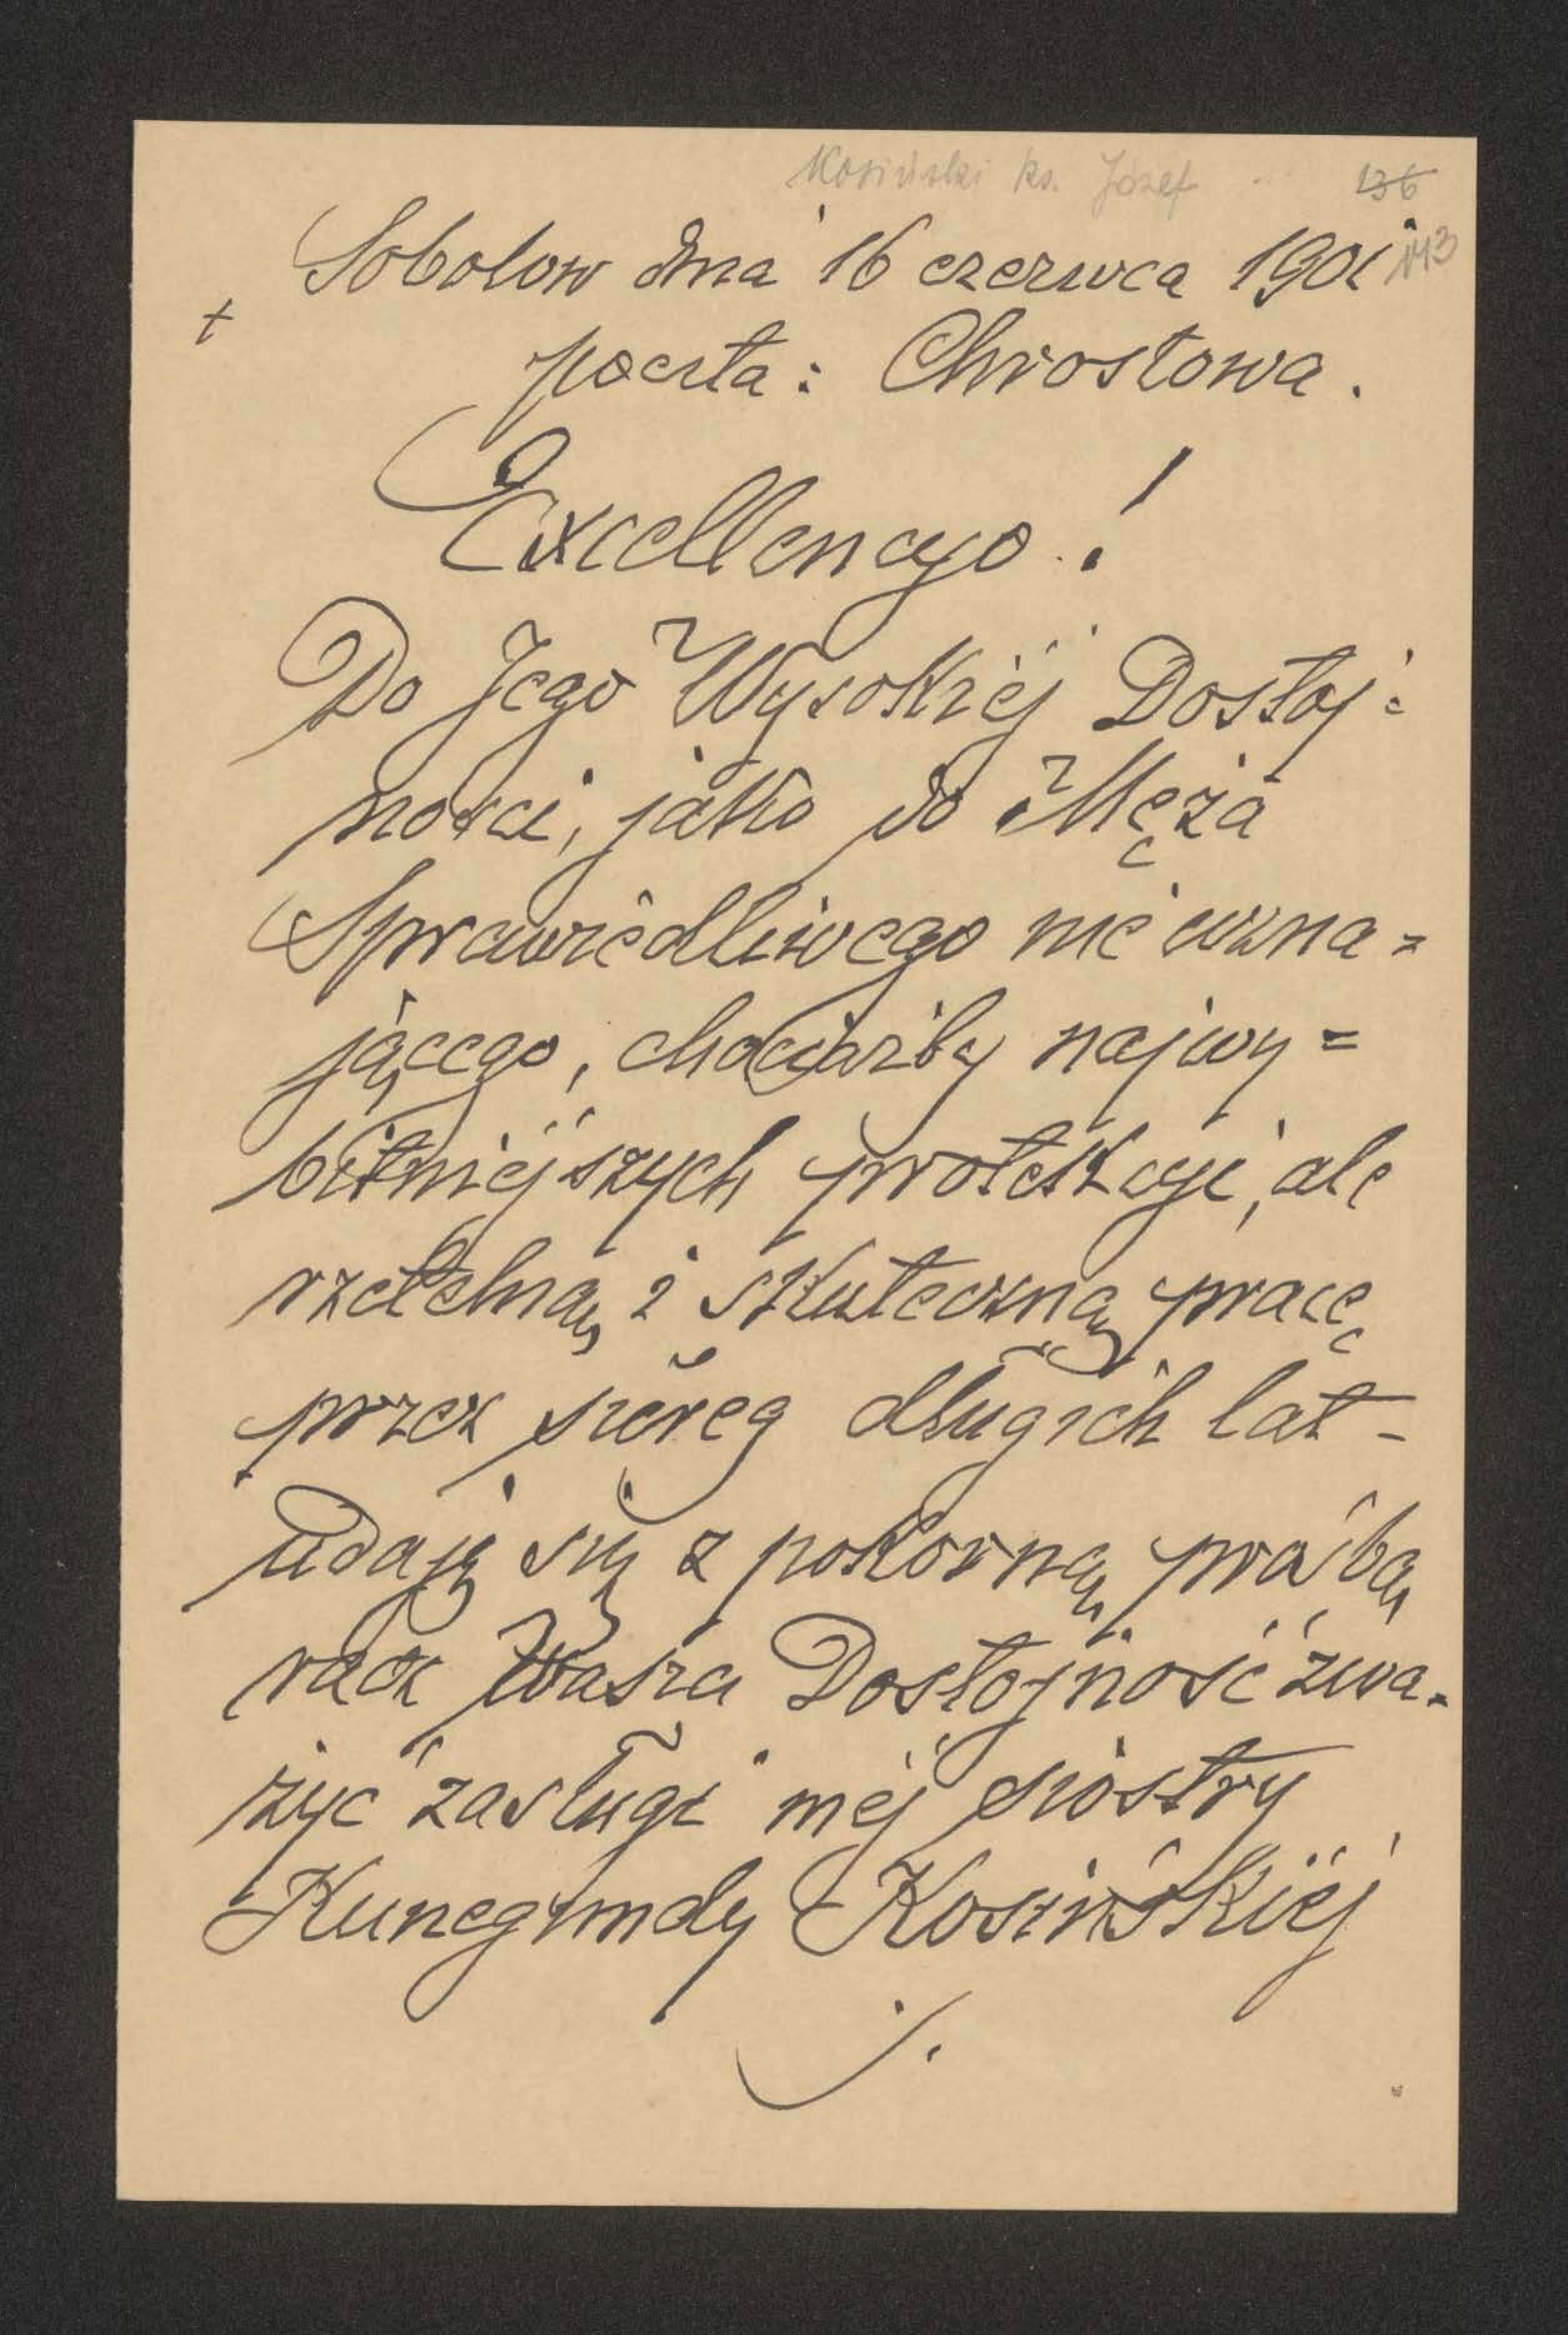 Kosiński ks. Józef
136
143
Sobolow dnia 16 czerwca 1901
+
poczta: Chrostowa.
Excellencyo!
Do Jego Wysokiéj Dostoj=
ności, jako do Męża
Sprawiedliwego nie uzna=
jącego, chociażby najwy=
bitniéjszych protekcyi, ale
rzetelną i skuteczną pracę
przez szereg długich lat –
udaję się z pokorną prośbą
racz Wasza Dostojność zwa=
żyć zasługi méj siostry
Kunegundy Kosińskiéj
./.